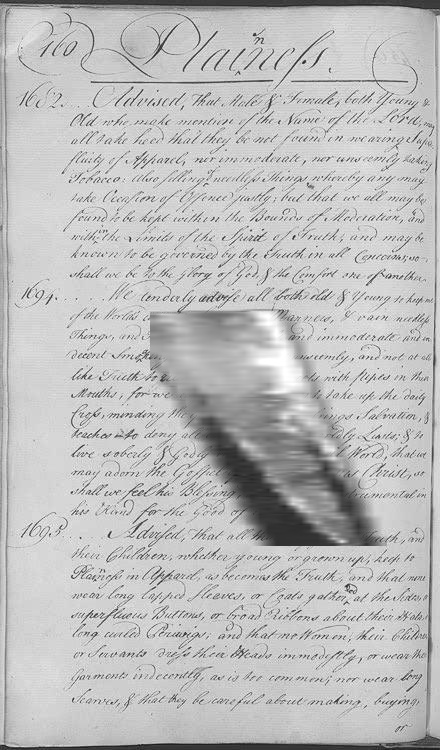 160 Plainness.
1682. . . Advised, that Male & Female, both Young &
Old who make mention of the Name of the Lord, may
all take heed that they be not found in wearing Supe
fluity of Apparel, nor immoderate, nor unseemly taking
Tobacco: also selling needless Things whereby any may
take Occasion of Offence justly; but that we all may be
found to be kept within the Bounds of Moderation, and
within the Limits of the Spirit of Truth; and may be
known to be governed by the Truth in all Concerns, so
shall we be to the Glory of God, & the Comfort one of another
1694. . . . . We tenderly advise all both old & Young to keep
of the Worlds Manners, & vain needless
Things, and and immoderate and in
decent Smoking unseemly, and not at all
like Truth to with pipes in their
Mouths; for we to take up the daily
Cross, minding the Salvation, &
teaches to deny all Lusts, & to
live soberly & Godly World, that we
may adorn the Gospel Christ, so
shall we feel his Blessing Instrumental in
his Hand for the Good of
1695. . . Advised, that all th Truth, and
their Children, whether young or grown up, keep to
Plainness in Apparel, as becomes the Truth, and that none
wear long lapped Sleaves, or Coats gathered at the Sides, or
superfluous Buttons, or broad Ribbons about their Hats, or
long curled Periwigs; and that no Women, their Children
or Servants dress their Heads immodestly, or wear their
Garments indecently, as is too common; nor wear long
Scarves, & that they be careful about making, buying,
or